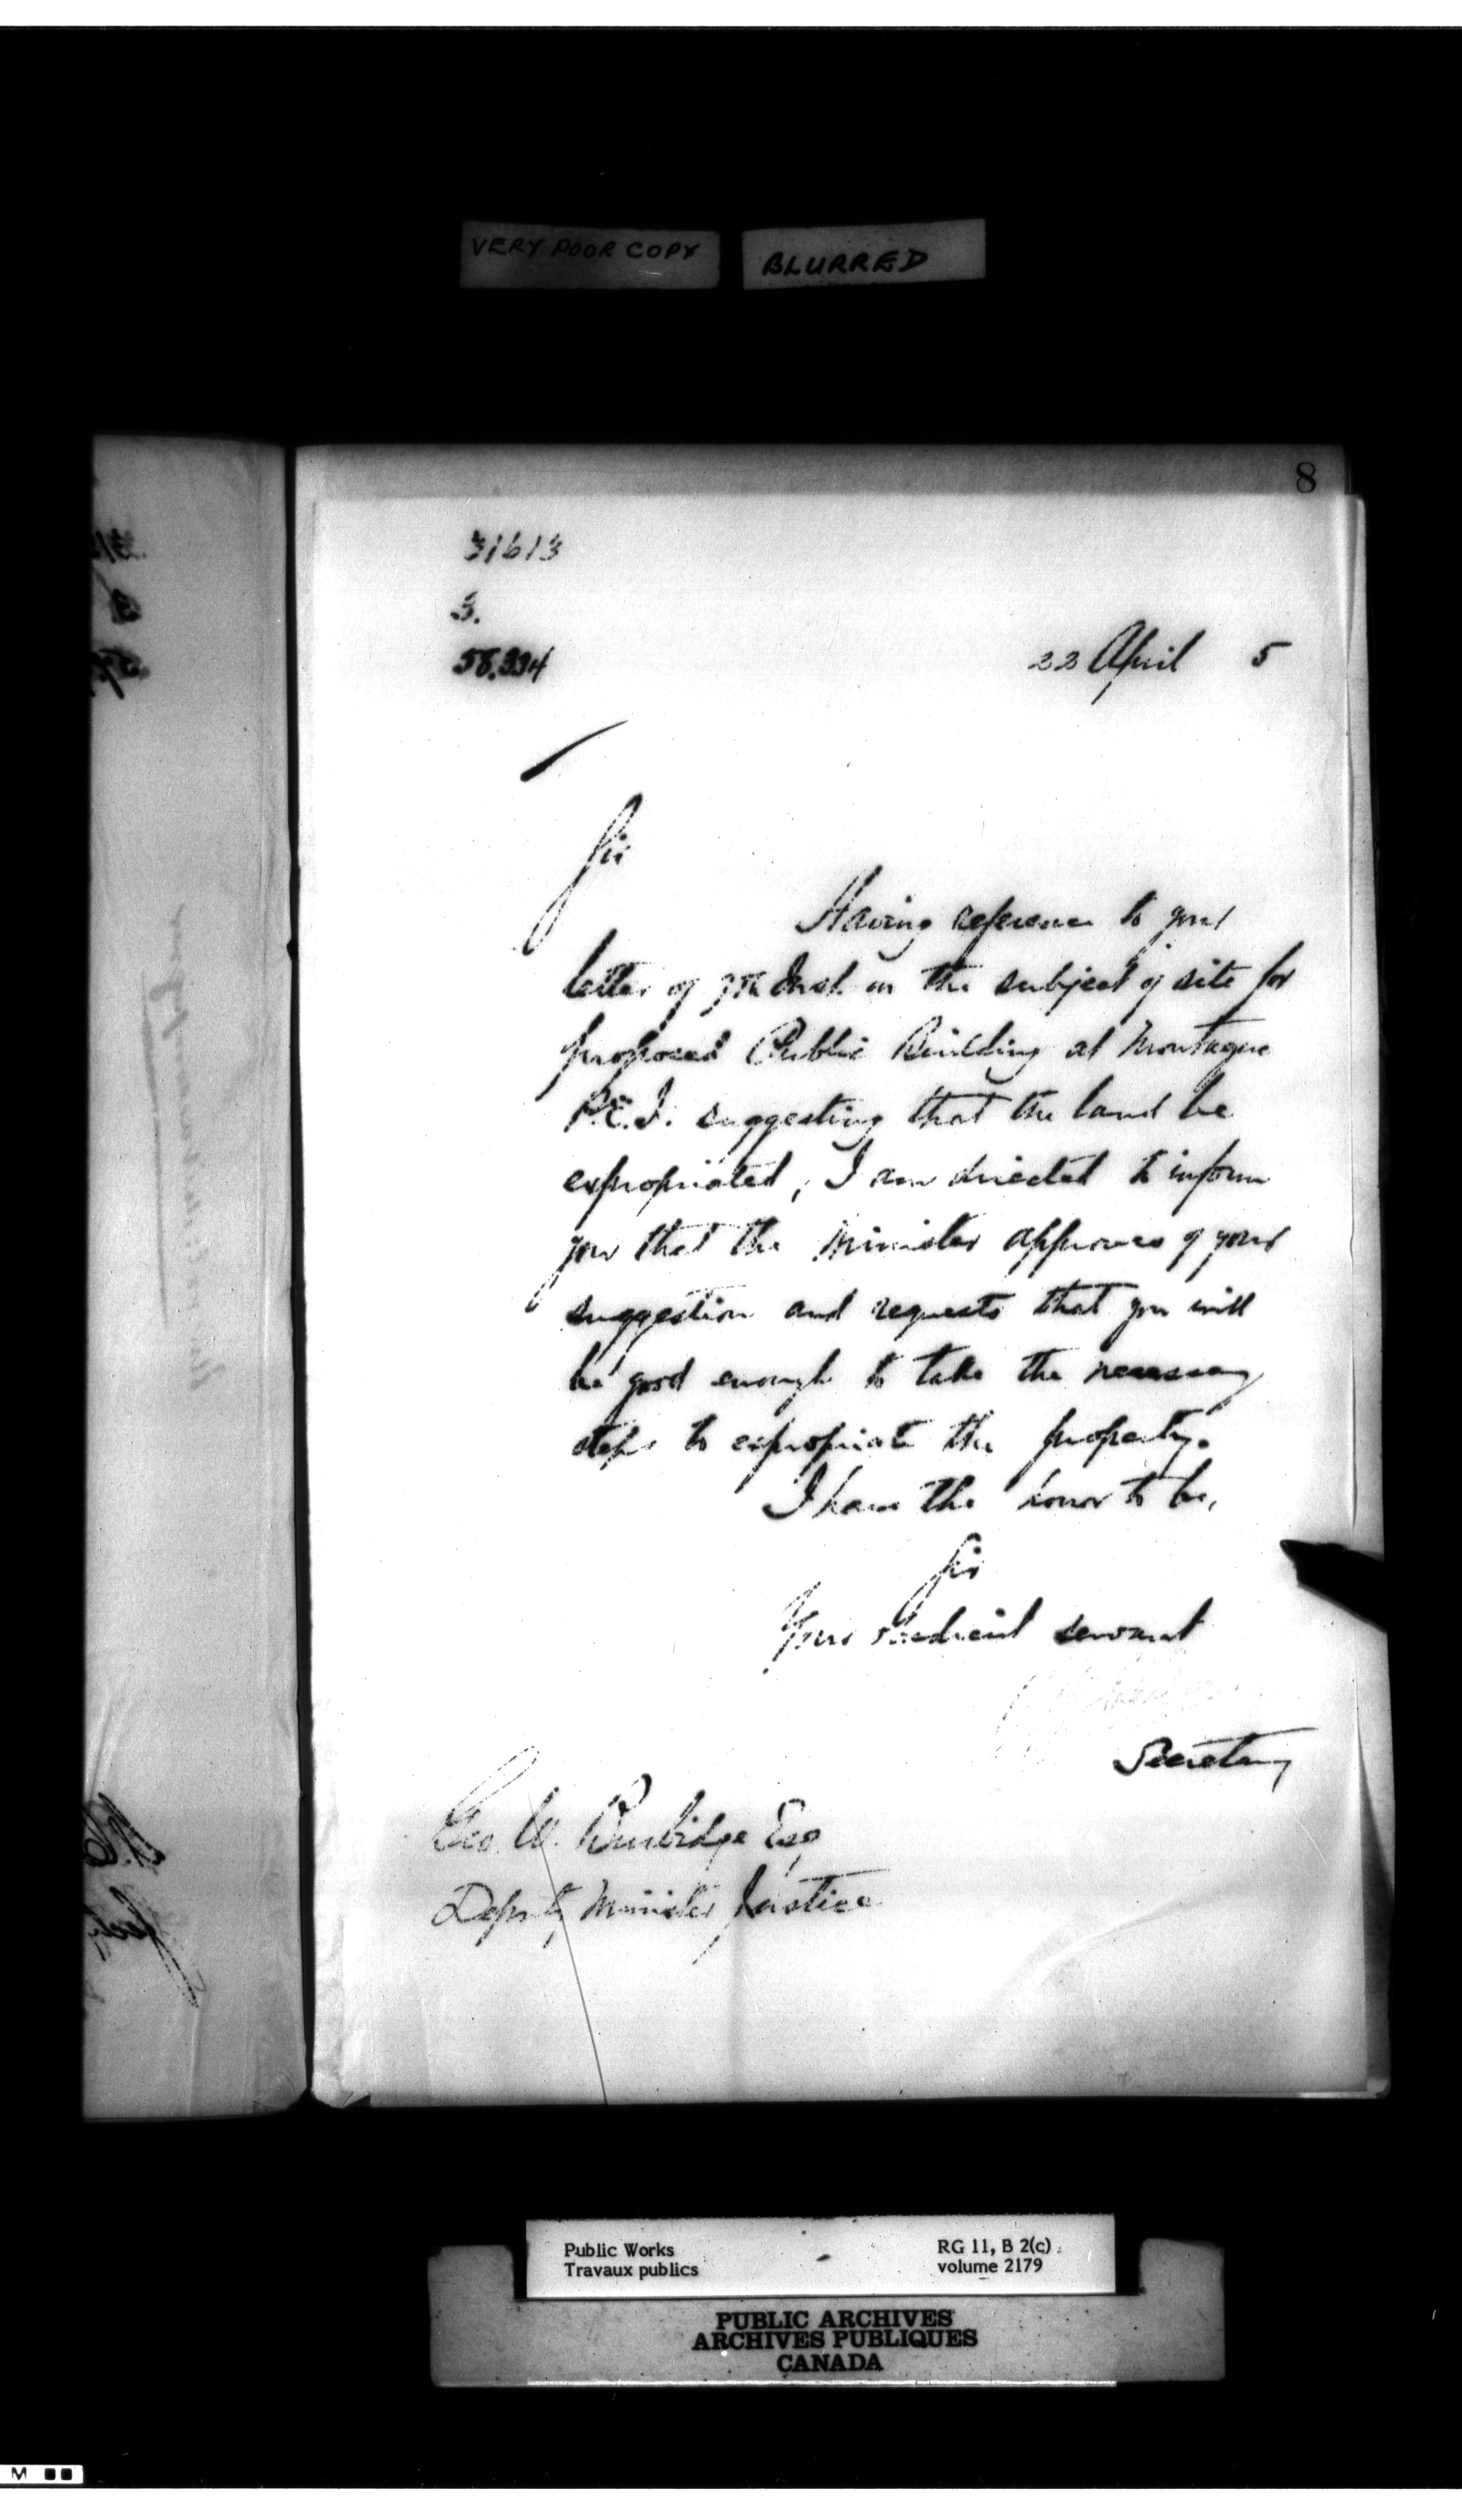 VERY POOR COPY
BLURRED
8
31613
3.
22 April 5
Sir
Having reference to your
letter of Inst. on the subject of site for
proposed Public Building at Montague
P.E.I. suggesting that the land be
expropriated, I am directed to inform
you that the Minister approves of your
suggestion and requests that you will
be good enough to take the necessary
steps to expropriate the property.
I have the honor to be,
Sir
Your obedient servant
Secretary
Geo. W. Burbidge Esq
Deputy Minister Justice
Public Works
Travaux publics
RG 11, B 2(c)
volume 2179
PUBLIC ARCHIVES
ARCHIVES PUBLIQUES
CANADA
M